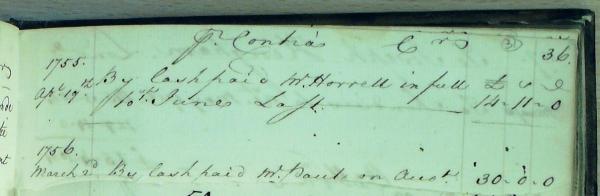 pr. Contra Crs 36
1755. £ s d
Apl. 19th. By Cash paid Mr. Horrell in full
to June Last 14-11-0
1756.
March 2d. By Cash paid Mr. Paul on Acct. 30-0-0